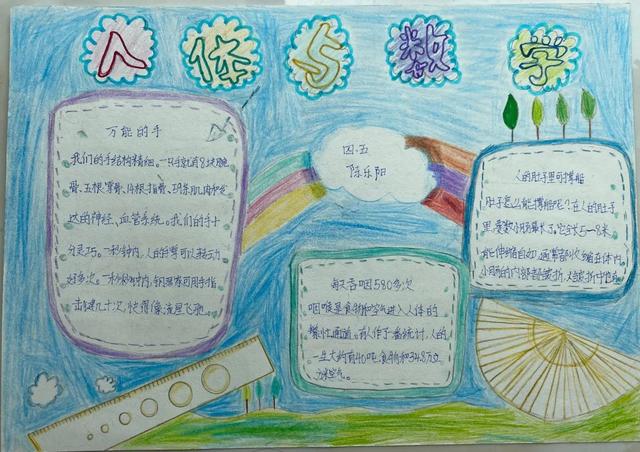 人体与数学
万能的手
我们的手结构精细。一只手就有8块腕
骨、五根掌骨、
达的神经、血管系统。我们的手十
分灵巧。一秒钟内，人的
好多次。一秒钟内，钢琴家可用手指
击键几十次，快得像流星飞驰。
四.五
陈乐阳
每天吞咽580多次
咽喉是食物和空气进入人体的
通道。有人作了一番统计，人的
一生大约有40吨食物和34.8万立
方米空气。
人的肚子里可撑船
肚子怎么能撑船呢？在人的肚子
里，要数小肠最长了。它全长5—8米，
能伸缩自如，通常都收缩在体内，
小肠的内部都皱折，